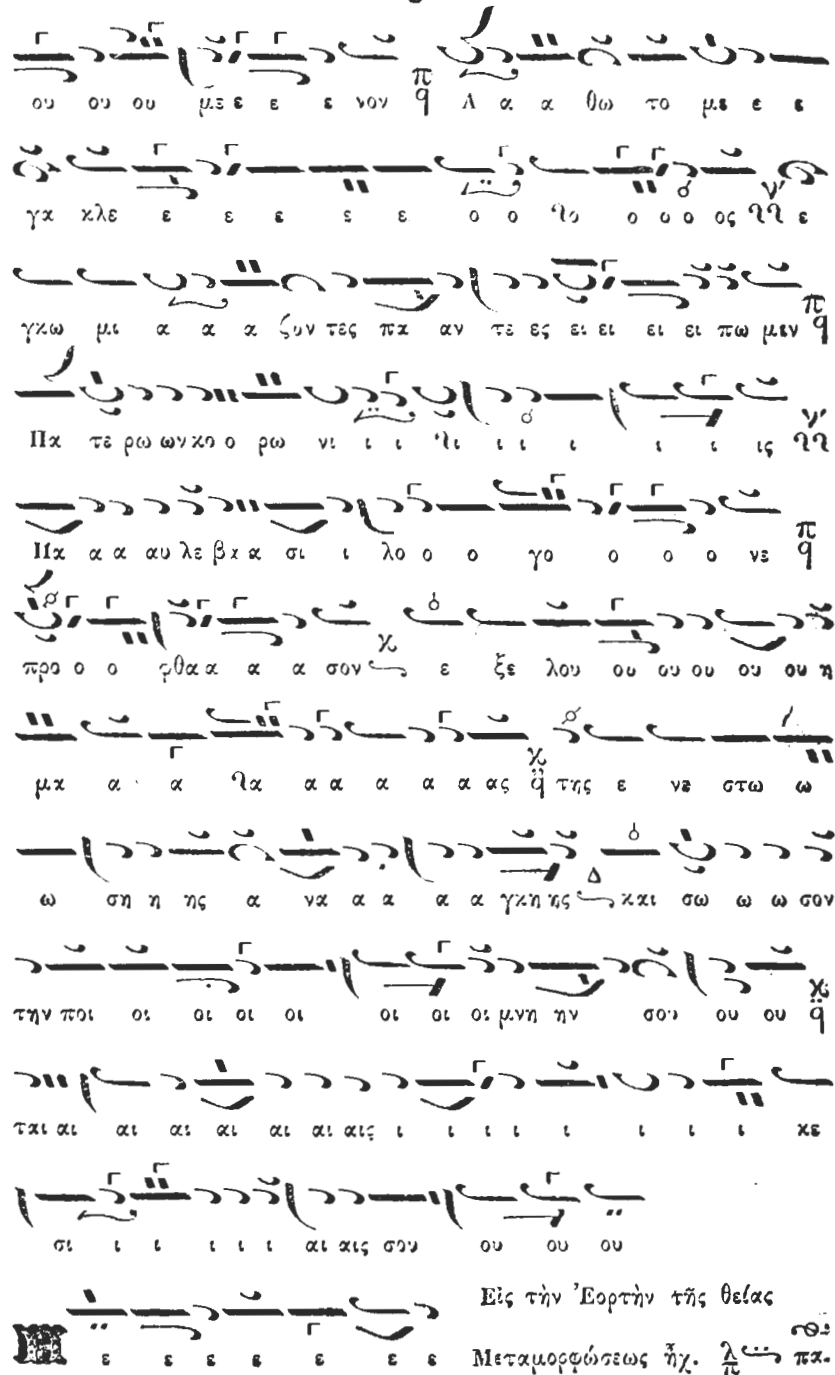 ου ου ου με ε ε ε νον Α α α θω το με ε ε
γα κλε ε ε ε ε ε ο ο λο ο ο ο ος ε
γκω μι α α α ζον τες πα αν τε ες ει ει ει ει πω μεν
Πα τε ρω ων κο ο ρω νι ι ι λι ι ι ι ι ι ις
Πα α α αυ λε βα α σι ι λο ο ο γο ο ο ο νε
προ ο ο φθα α α α σον ε ξε λου ου ου ου ου ου η
μα α α λα α α α α α ας της ε νε στω ω
ω ση η ης α να α α α α γκη ης Δ και σω ω ω σον
την ποι οι οι οι οι οι οι οι μνη ην σου ου ου
ται αι αι αι αι αι αι αις ι ι ι ι ι ι ι ι κε
σι ι ι ι ι ι αι αις σου ου ου ου
Εἰς τὴν Ἑορτὴν τῆς θείας
ε ε ε ε ε ε ε Μεταμορφώσεως ἦχ. πα.